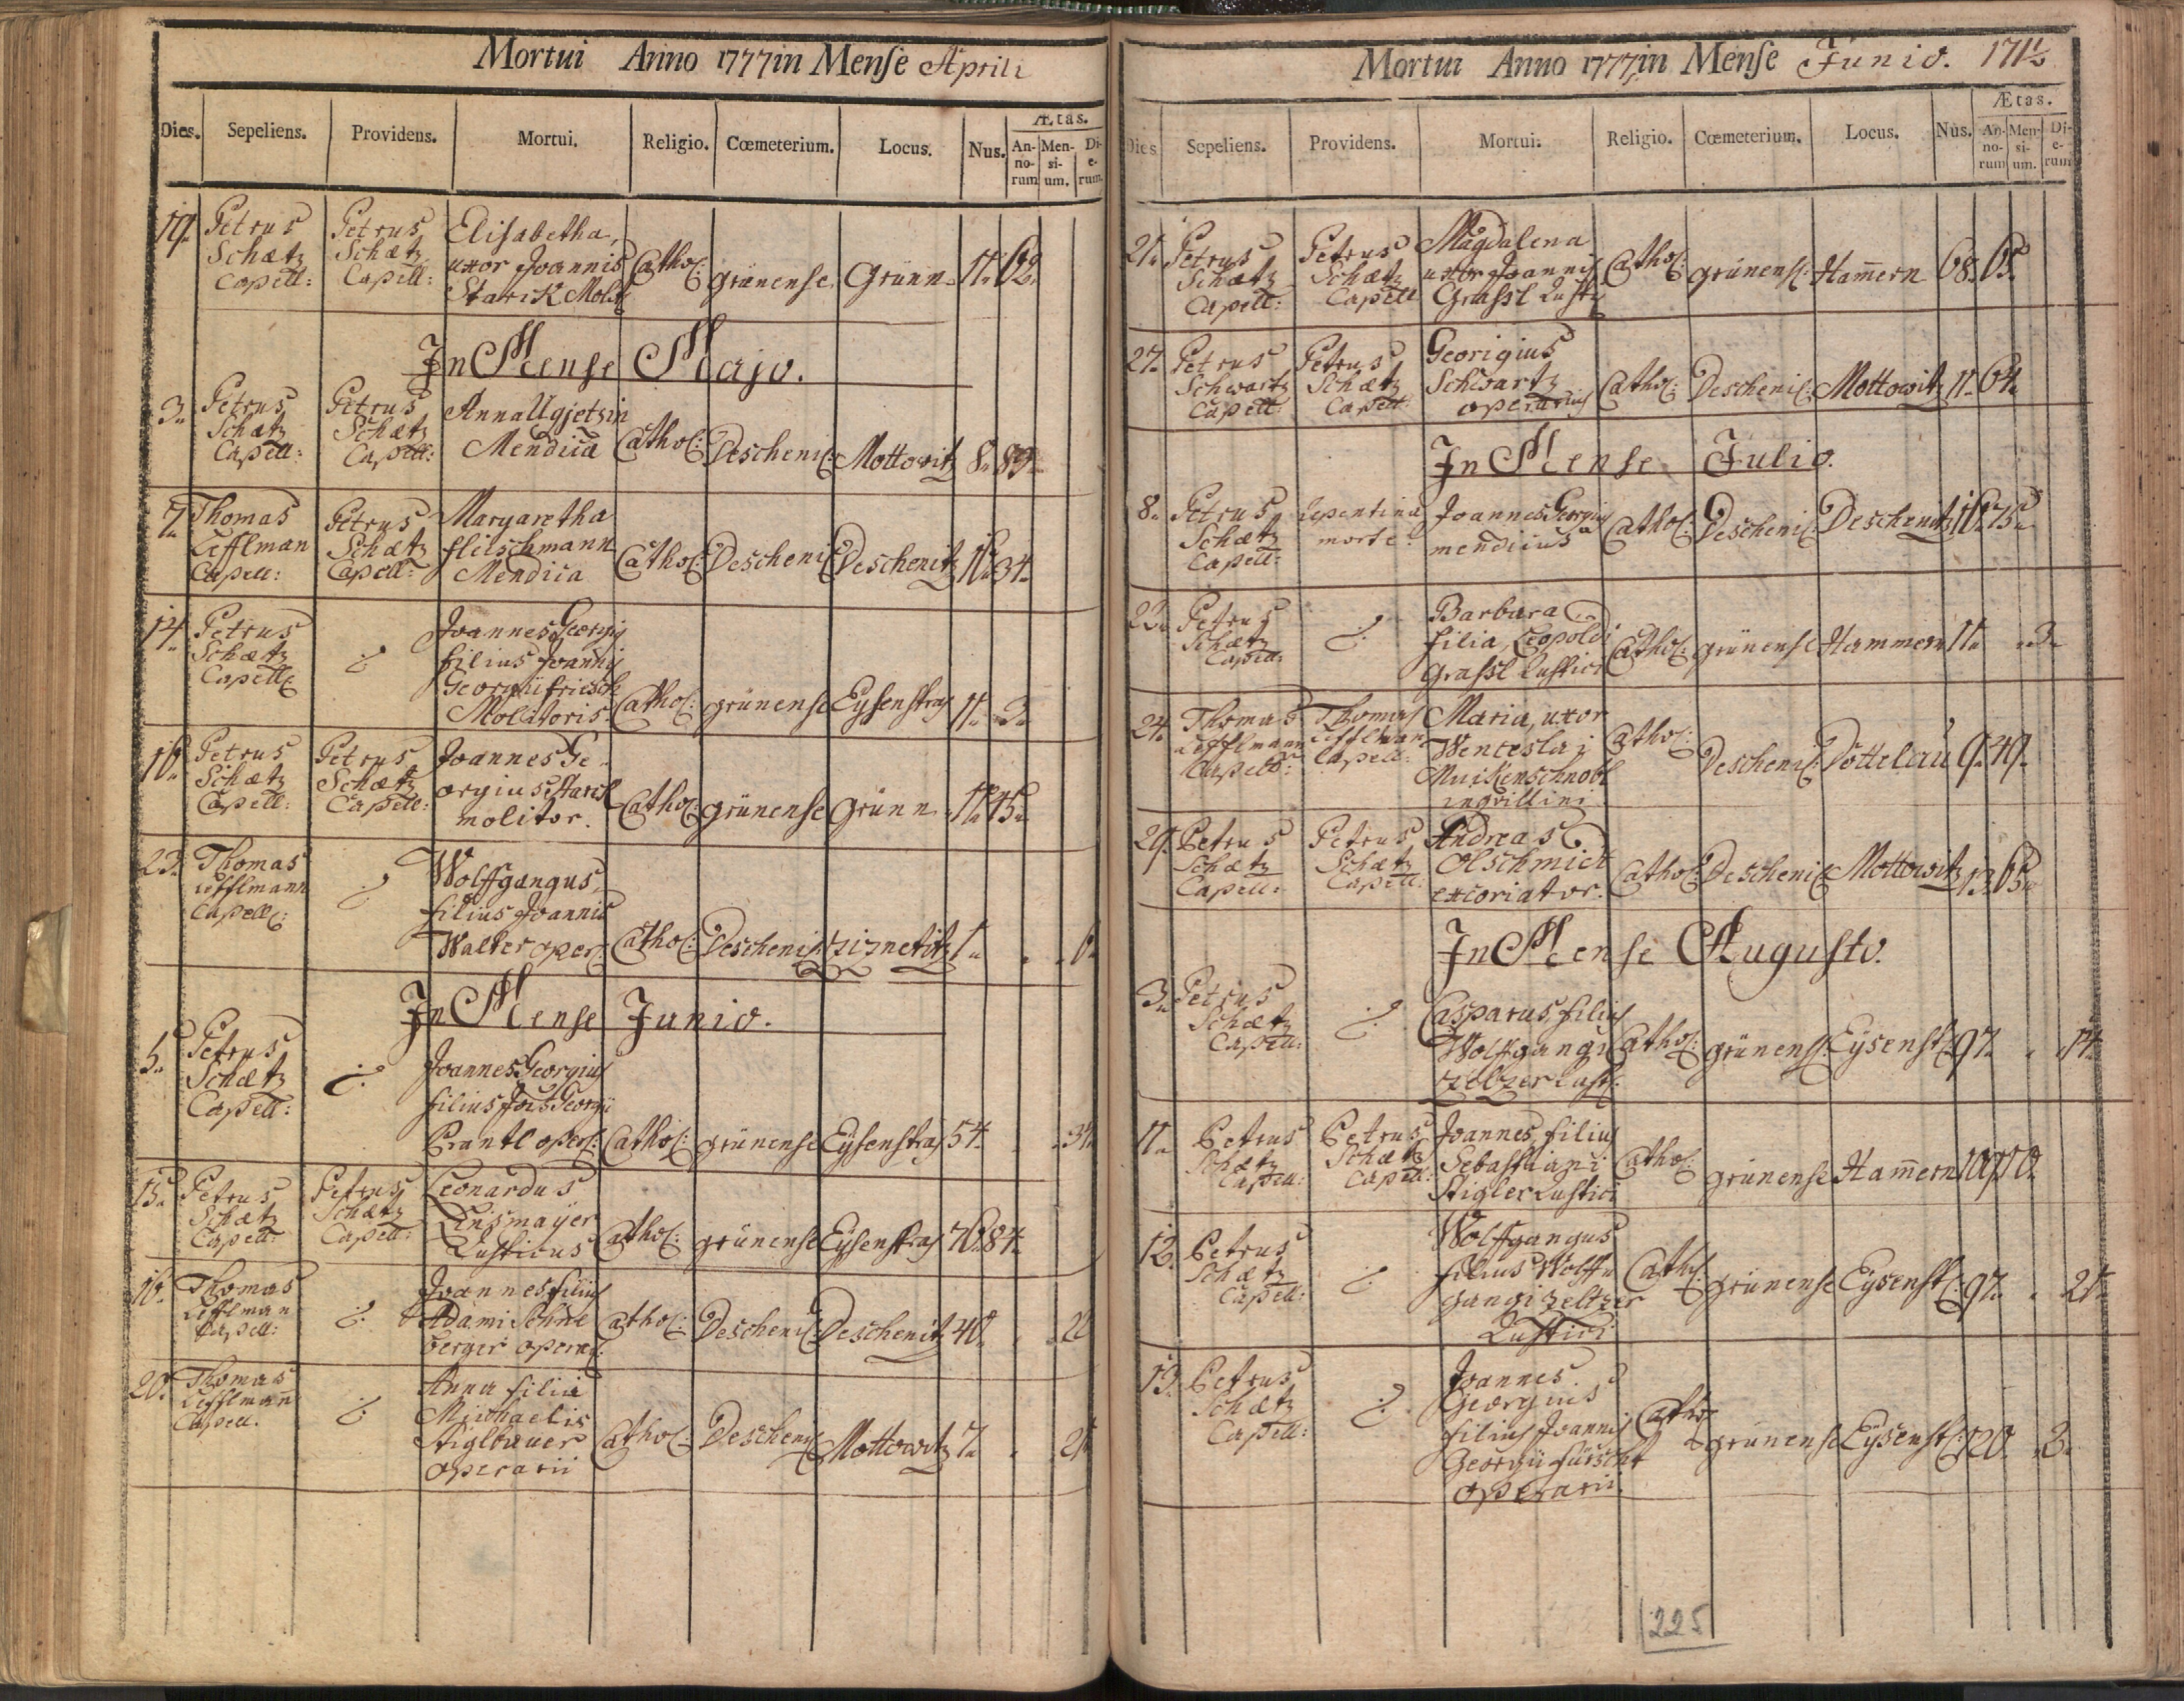 Mortui Anno 1777 in Mense Aprili
Dies. Sepeliens. Providens. Mortui. Religio. Cœmeterium. Locus. Nus. Ætas.
An-no-rum Men-si-um. Di-e-rum.
19. Petrus Schætz Capell: Petrus Schætz Capell: Elisabetha, uxor Joannis Starik Catho[: grünense Grünn 11. 62.
In Mense Majo.
3. Petrus Schætz Capell: Petrus Schætz Capell: Anna Mendica Catho[: Descheni[: Mottowitz 8. 89.
7. Thomas Lefflman Capell: Petrus Schætz Capell: Margaretha flieschmann Mendica Catho[: Descheni[: Deschenitz 16. 34.
14. Petrus Schætz Capell: Joannes Georgig filius Joannis Georgii friesch Molitoris. Catho[: grünense Eysenstras 11. 3.
16. Petrus Schætz Capell: Petrus Schætz Capell: Joannes Georgius Starik molitor. Catho[: grünense Grünn 45.
23. Thomas Lefflmann Capell: Wolffgangus, filius Joannis Walter oper[: Catho[: Descheni[: 1. 6.
In Mense Junio.
5. Petrus Schætz Capell: Joannes Georgius filius Jois Georgii Prantl oper[: Catho[: grünense Eysenstras 54. 34.
15. Petrus Schætz Capell: Petrus Schætz Capell: Leonardus Linsmayer Rusticus Catho[: grünense Eysenstras 76. 84.
16. Thomas Lefflman Capell: Joannes filius Adami Schneberger opera[: Catho[: Descheni[: Deschenitz 40. 22
20. Thomas Lefflmañ Capell. Anna filia Michaelis Stiglbauer operarii Catho[: Descheni[: Mottowitz 7. 21
Mortui Anno 1777 in Mense Junio. 171½
Dies Sepeliens. Providens. Mortui. Religio. Cœmeterium. Locus. Nus. Ætas.
An-no-rum Men-si-um. Di-e-rum
21. Petrus Schætz Capell: Petrus Schætz Capell Magdalena uxor Joannis Grassl Rusti[ Catho[: grünens[: Ham̄ern 68. 65.
27. Petrus Schwartz Capell: Petrus Schætz Capell: Georigius Schwartz operarius Catho[: Descheni[: Mottowitz 11. 64.
In Mense Julio.
8. Petrus Schætz Capell: repentina morte. Joannes Georgius mendicus Catho[: Descheni[: Deschenitz 16. 75.
23. Petrus Schætz Capell: Barbara filia, Leopoldi Grassl Rustici Catho[: grünense Hammern 11. 3.
24. Thomas Lefflmann Capell: Thomas Lefflman Capell: Maria, uxor Wenceslai Muikenschnobl inquilini Catho[: Descheni[: Dottelau 9. 49.
29. Petrus Schætz Capell: Petrus Schætz Capell: Andreas Olschmick excoriator. Catho[: Descheni[: Mottowitz 13. 65.
In Mense Augusto.
3. Petrus Schætz Capell: Casparus filius Wolffgangi Zeltzer Rust[: Catho[: grünens[: Eysenst[: 97. 14.
11. Petrus Schætz Capell: Petrus Schætz Capell: Joannes, filius Sebastiani Stigler Rustici Catho[: grünense Ham̄ern 10.
12. Petrus Schætz Capell: Wolffgangus filius Wolffgangi Zeltzer Rustici Catho[: grünense Eysenst[: 97. 21.
19. Petrus Schætz Capell: Joannes Georgius filius Joannis Georgii fürscht operarii. Catho[: grünense Eysenst[: 120. 2.
225